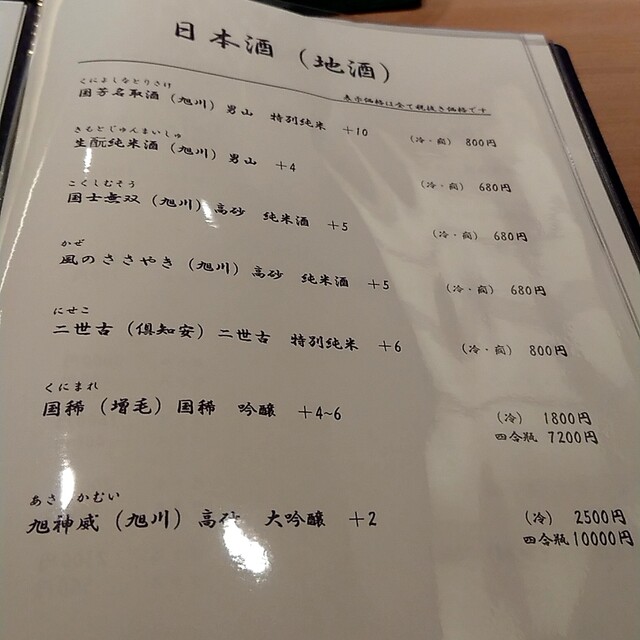 日本酒（地酒）
表示価格は全て税抜き価格です
くによしなどりさけ
国芳名取酒（旭川）男山 特別純米 +10 （冷・燗） 800円
きもとじゅんまいしゅ
生酛純米酒（旭川）男山 +4 （冷・燗） 680円
こくしむそう
国士無双（旭川）高砂 純米酒 +5 （冷・燗） 680円
かぜ
風のささやき（旭川）高砂 純米酒 +5 （冷・燗） 680円
にせこ
二世古（倶知安）二世古 特別純米 +6 （冷・燗） 800円
くにまれ
国稀（増毛）国稀 吟醸 +4~6 （冷） 1800円
四合瓶 7200円
あさ かむい
旭神威（旭川）高砂 大吟醸 +2 （冷） 2500円
四合瓶 10000円